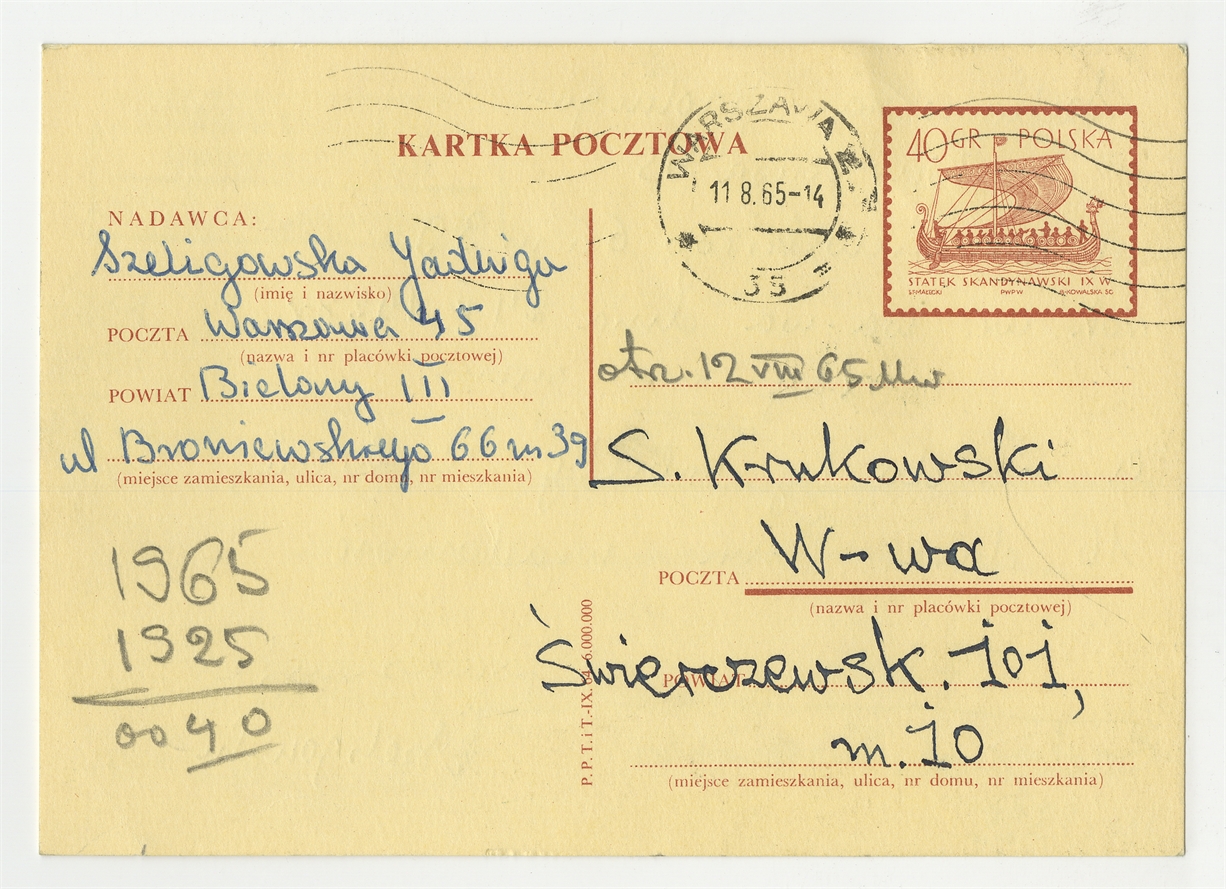 KARTKA POCZTOWA
WARSZAWA
11 8.65-14
35
40 GR POLSKA
STATEK SKANDYNAWSKI IX W
PWPW
NADAWCA:
Szeligowska Jadwiga
(imię i nazwisko)
POCZTA Warszawa 45
(nazwa i nr placówki pocztowej)
POWIAT Bielany III
ul Broniewskiego 66 m 39
(miejsce zamieszkania, ulica, nr domu, nr mieszkania)
1965
1925
0040
otrz. 12 VIII 65
S. Krukowski
POCZTA W-wa
(nazwa i nr placówki pocztowej)
POWIAT Świerczewsk. 101,
m. 10
(miejsce zamieszkania, ulica, nr domu, nr mieszkania)
P.P.T. i T.-IX. 6.000.000